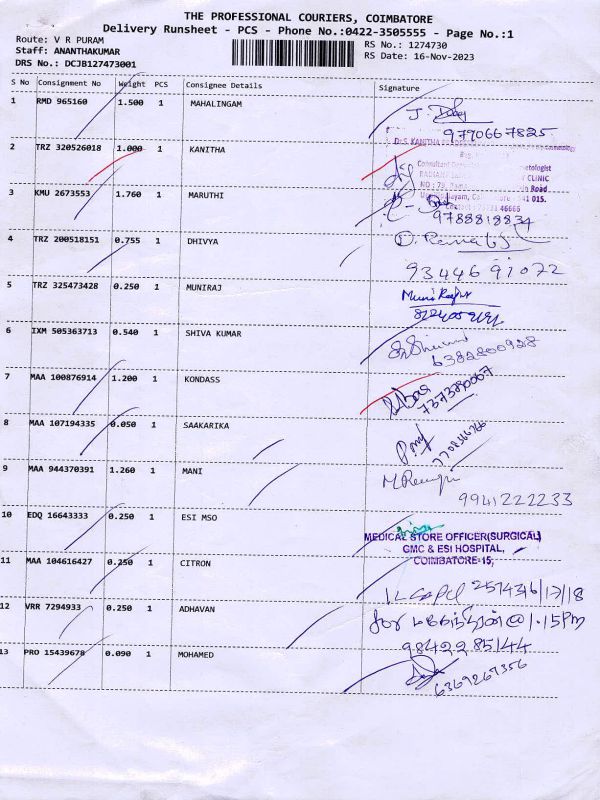 THE PROFESSIONAL COURIERS, COIMBATORE
Delivery Runsheet - PCS - Phone No.:0422-3505555 - Page No.:1
Route: V R PURAM
RS No.: 1274730
Staff: ANANTHAKUMAR
RS Date: 16-Nov-2023
DRS No.: DCJB127473001
S No Consignment No Weight PCS Consignee Details Signature
1 RMD 965160 1.500 1 MAHALINGAM
9790667825
2 TRZ 320526018 1.000 1 KANITHA
CLINIC
3 KMU 2673553 1.760 1 MARUTHI
9788818834
4 TRZ 200518151 0.755 1 DHIVYA
9344691072
5 TRZ 325473428 0.250 1 MUNIRAJ
6 IXM 505363713 0.540 1 SHIVA KUMAR
6382800928
7 MAA 100876914 1.200 1 KONDASS
7373380067
8 MAA 107194335 0.050 1 SAAKARIKA
9 MAA 944370391 1.260 1 MANI
9941222233
10 EDQ 16643333 0.250 1 ESI MSO
MEDICAL STORE OFFICER(SURGICAL)
GMC & ESI HOSPITAL,
COIMBATORE-15,
11 MAA 104616427 0.250 1 CITRON
12 VRR 7294933 0.250 1 ADHAVAN
for @ 1.15pm
9842285144
13 PRO 15439678 0.090 1 MOHAMED
6369267356